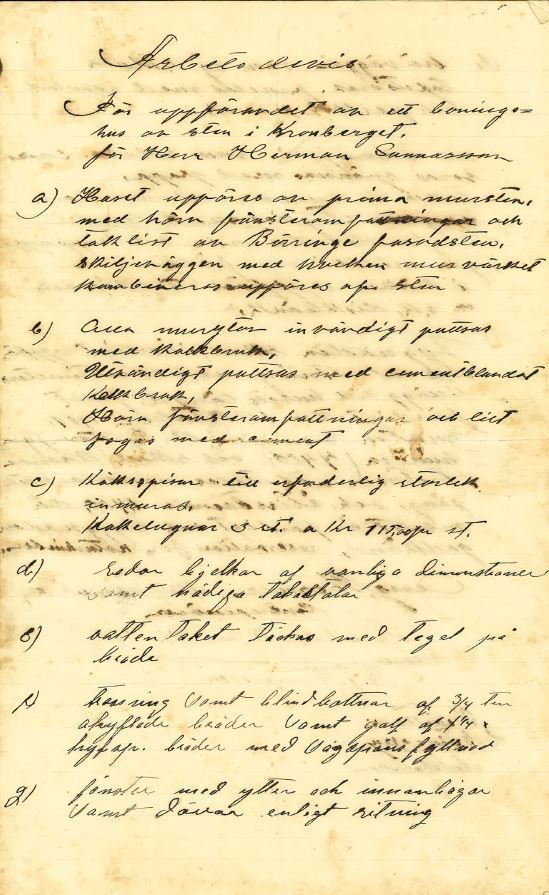 Arbets devis
För uppförandet av ett bonings=
hus av sten i Kronberget,
för Herr Herman Gunnarsson
a) Huset uppföres av prima mursten,
med hörn fönsteromfattningar och
taklist av Börringe fasadsten,
skiljeväggen med hvilken murvärket
kombineras uppföres af sten
b) Alla murytor invändigt putsas
med kalkbruk,
Utvändigt putsas med cementblandat
kalkbruk,
Hörn fönsteromfattningar och list
fogas med cement
c) Köksspisar till erforderlig storlek
inmuras,
Kakelugnar 3 st. a Kr 115,00 pr st.
d) bjelkar af vanliga dimensioner
samt takstolar
e) vattentaket täckas med tegel på
bräde
f) trossing samt blindbottnar af 3/4 tm
bräder samt golf af 1 1/4
hyvl. bräder med sågspåns fyllnad
g) fönster med ytter och innanbågar
samt dörrar enligt ritning